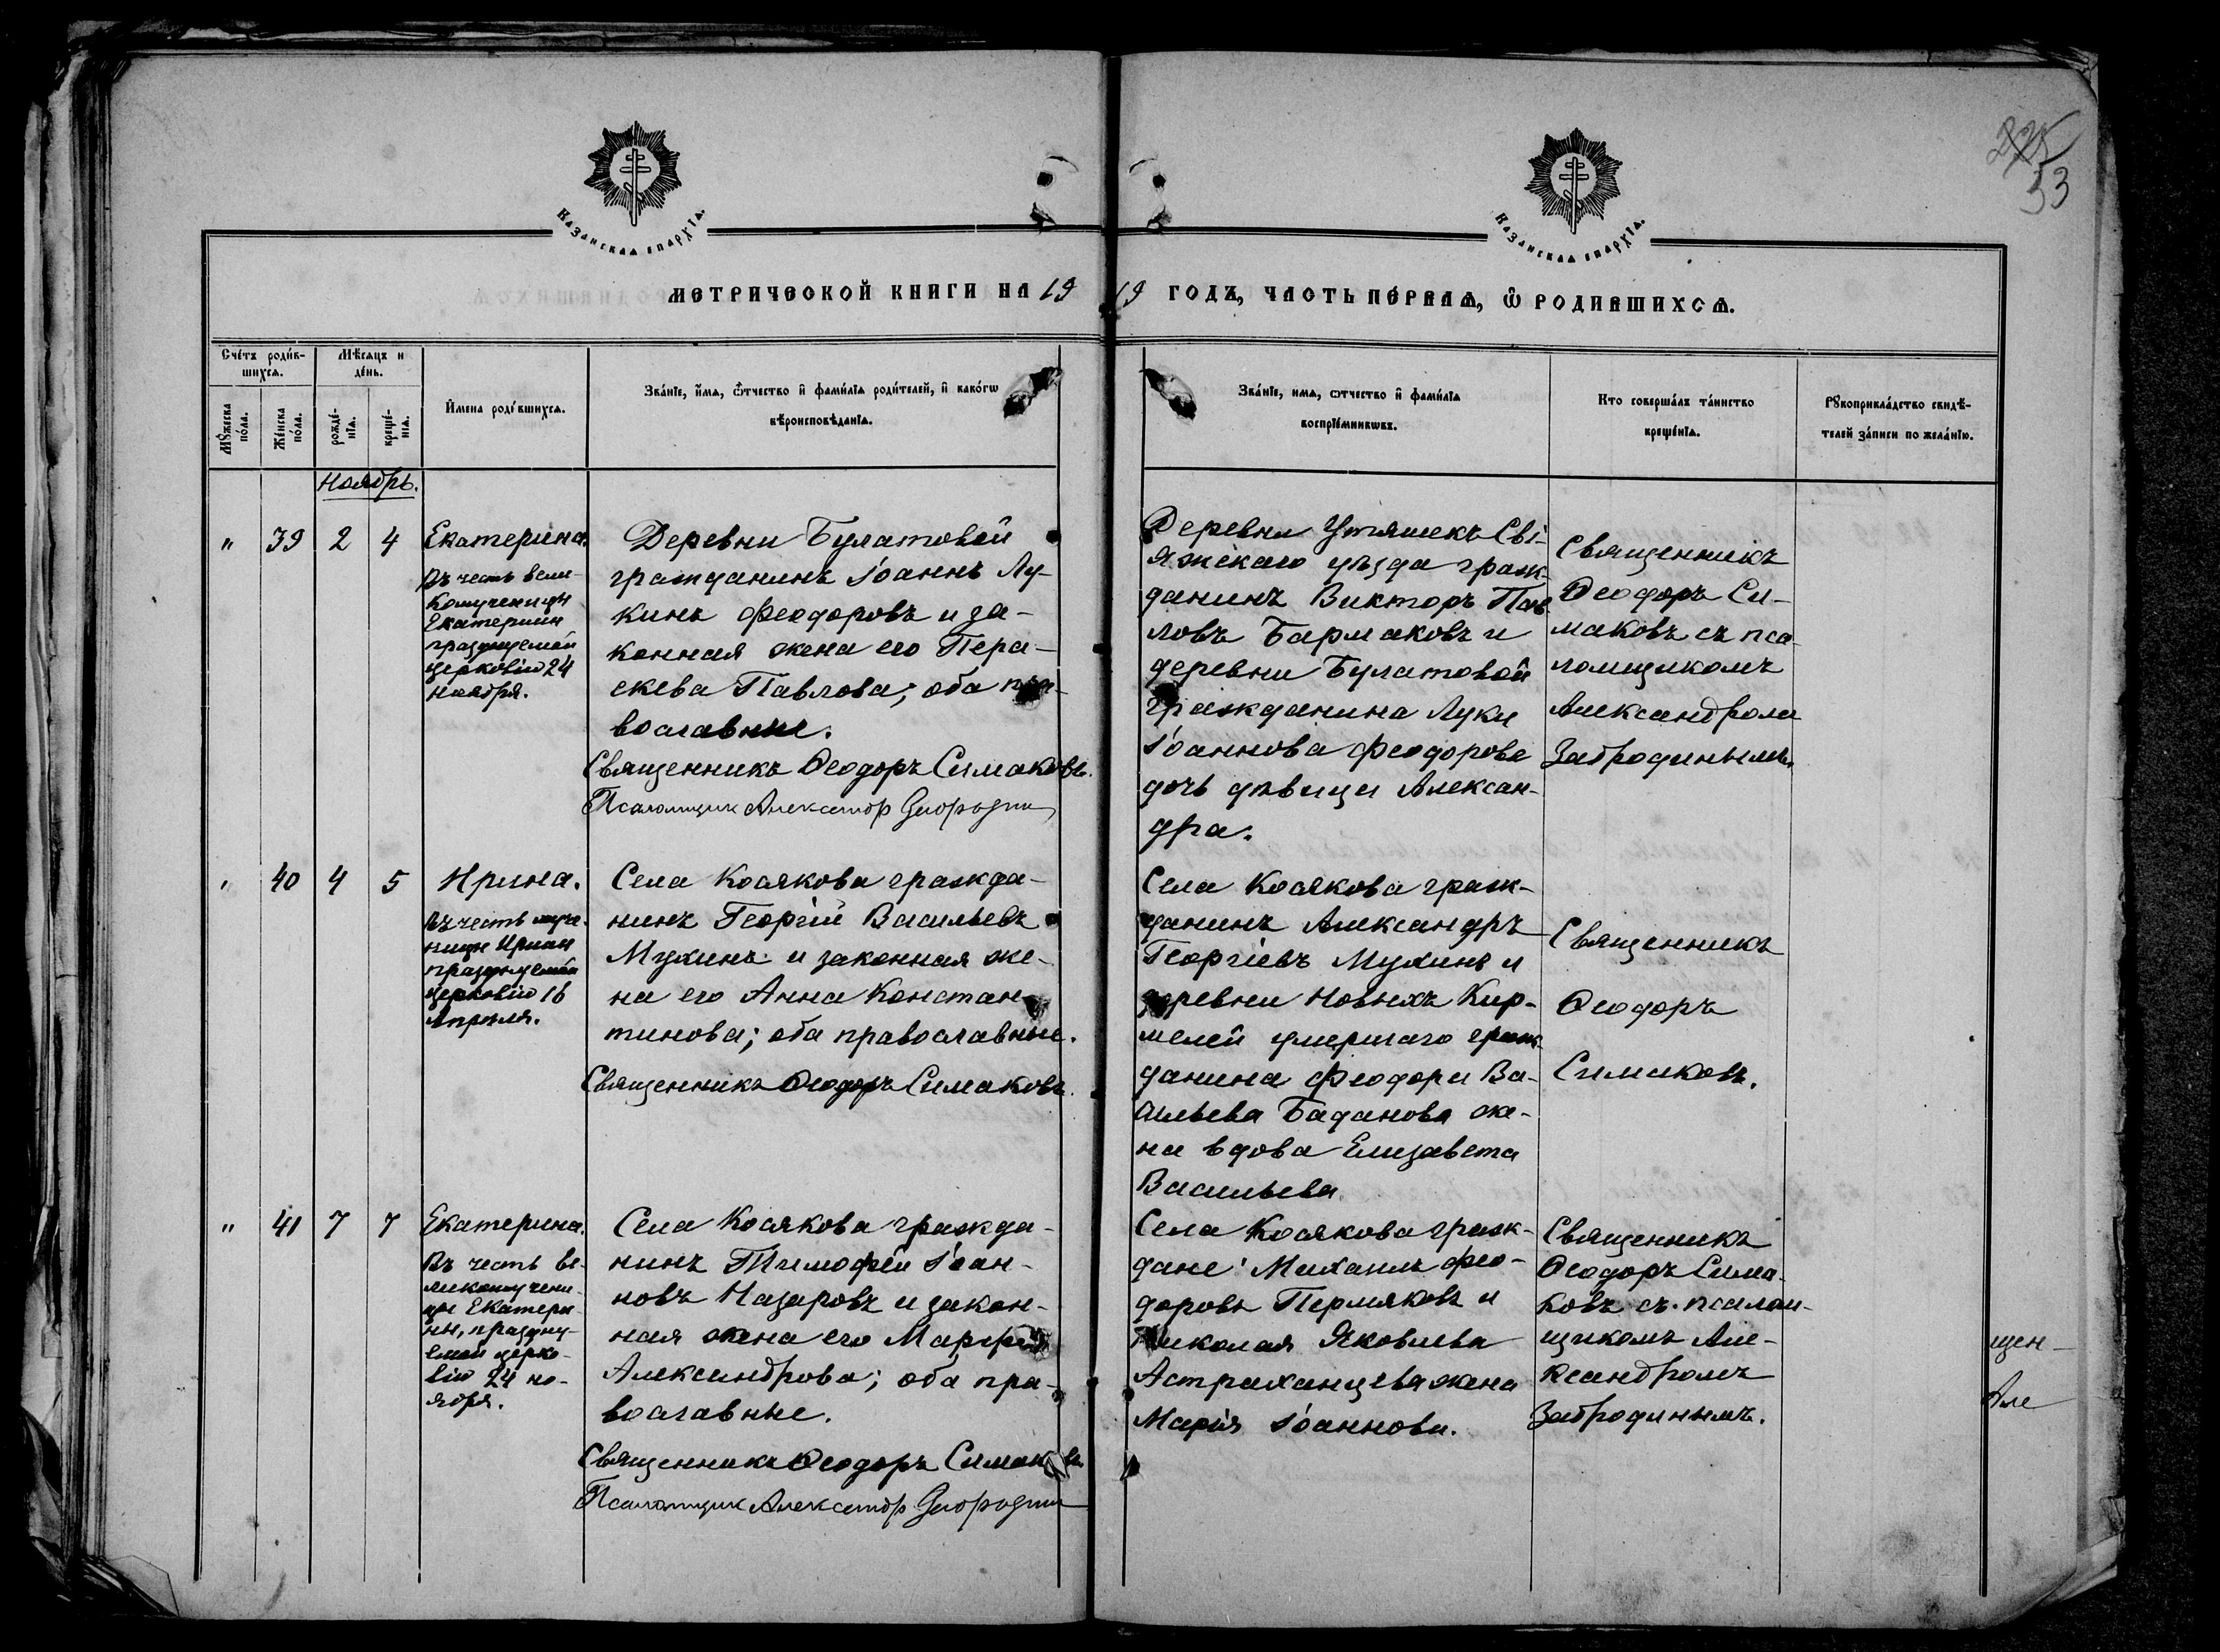 225
53
Казанская епархїѧ.
Казанская епархїѧ.
МЕТРИЧЕСКОЙ КНИГИ НА 1919 ГОДЪ, ЧАСТЬ ПЕРВАѦ, Ѽ РОДИВШИХСѦ.
Сче́тъ роди́в-
шихсѧ.
Мꙋжеска
по́ла.
Же́нска
по́ла.
Мѣ́сѧцъ и
де́нь.
рожде́-
нїѧ.
креще́-
нїѧ.
И҆мена роди́вшихсѧ.
Зва́нїе, и҆мѧ, ѿтчество и҆ фами́лїѧ роди́телей, и҆ како́гѡ
вѣроисповѣ́данїѧ.
Зва́нїе, имѧ, ѿтчество и҆ фами́лїѧ
воспрїе́мникѡвъ.
Кто соверша́лъ та́инство
креще́нїѧ.
Рꙋкоприкла́дство свидѣ́-
телей за́писи по жела́нїю.
Ноябрь.
" 39 2 4
Екатерина.
Въ честь вели-
комученицы
Екатерины
празднуемой
церковію 24
ноября.
Деревни Булатовой
гражданинъ Іоаннъ Лу-
кинъ Феодоровъ и за-
конная жена его Пера-
скева Павлова; оба пра-
вославные.
Священникъ Ѳеодоръ Симаковъ.
Псаломщик Александр Забродин
Деревни Утяшекъ Сві-
яжскаго уѣзда граж-
данинъ Викторъ Пав-
ловъ Бармаковъ и
деревни Булатовой
гражданина Луки
Іоаннова Феодорова
дочь дѣвица Алексан-
дра.
Священникъ
Ѳеодоръ Си-
маковъ съ пса-
ломщикомъ
Александромъ
Забродинымъ.
" 40 4 5
Ирина.
Въ честь муче-
ницы Ирины
празднуемой
церковію 16
Апрѣля.
Села Косякова гражда-
нинъ Георгій Васильевъ
Мухинъ и законная же-
на его Анна Констан-
тинова; оба православные.
Священникъ Ѳеодоръ Симаковъ.
Села Косякова граж-
данинъ Александръ
Георгіевъ Мухинъ и
деревни Новыхъ Кир-
мелей умершаго граж-
данина Феодора Ва-
сильева Баданова же-
на вдова Елизавета
Васильева
Священникъ
Ѳеодоръ
Симаковъ.
" 41 7 7
Екатерина.
Въ честь ве-
ликомучени-
цы Екатери-
ны, праздну-
емой церко-
вію 24 но-
ября.
Села Косякова гражда-
нинъ Тимофей Іоан-
новъ Назаровъ и закон-
ная жена его Марфа
Александрова; оба пра-
вославные.
Священникъ Ѳеодоръ Симаковъ.
Псаломщик Александр Забродин
Села Косякова граж-
дане: Михаилъ Фео-
доровъ Пермяковъ и
Николая Яковлева
Астраханцева жена
Марія Іоаннова.
Священникъ
Ѳеодоръ Сима-
ковъ съ псалом-
щикомъ Але-
ксандромъ
Забродинымъ.
щен-
Але